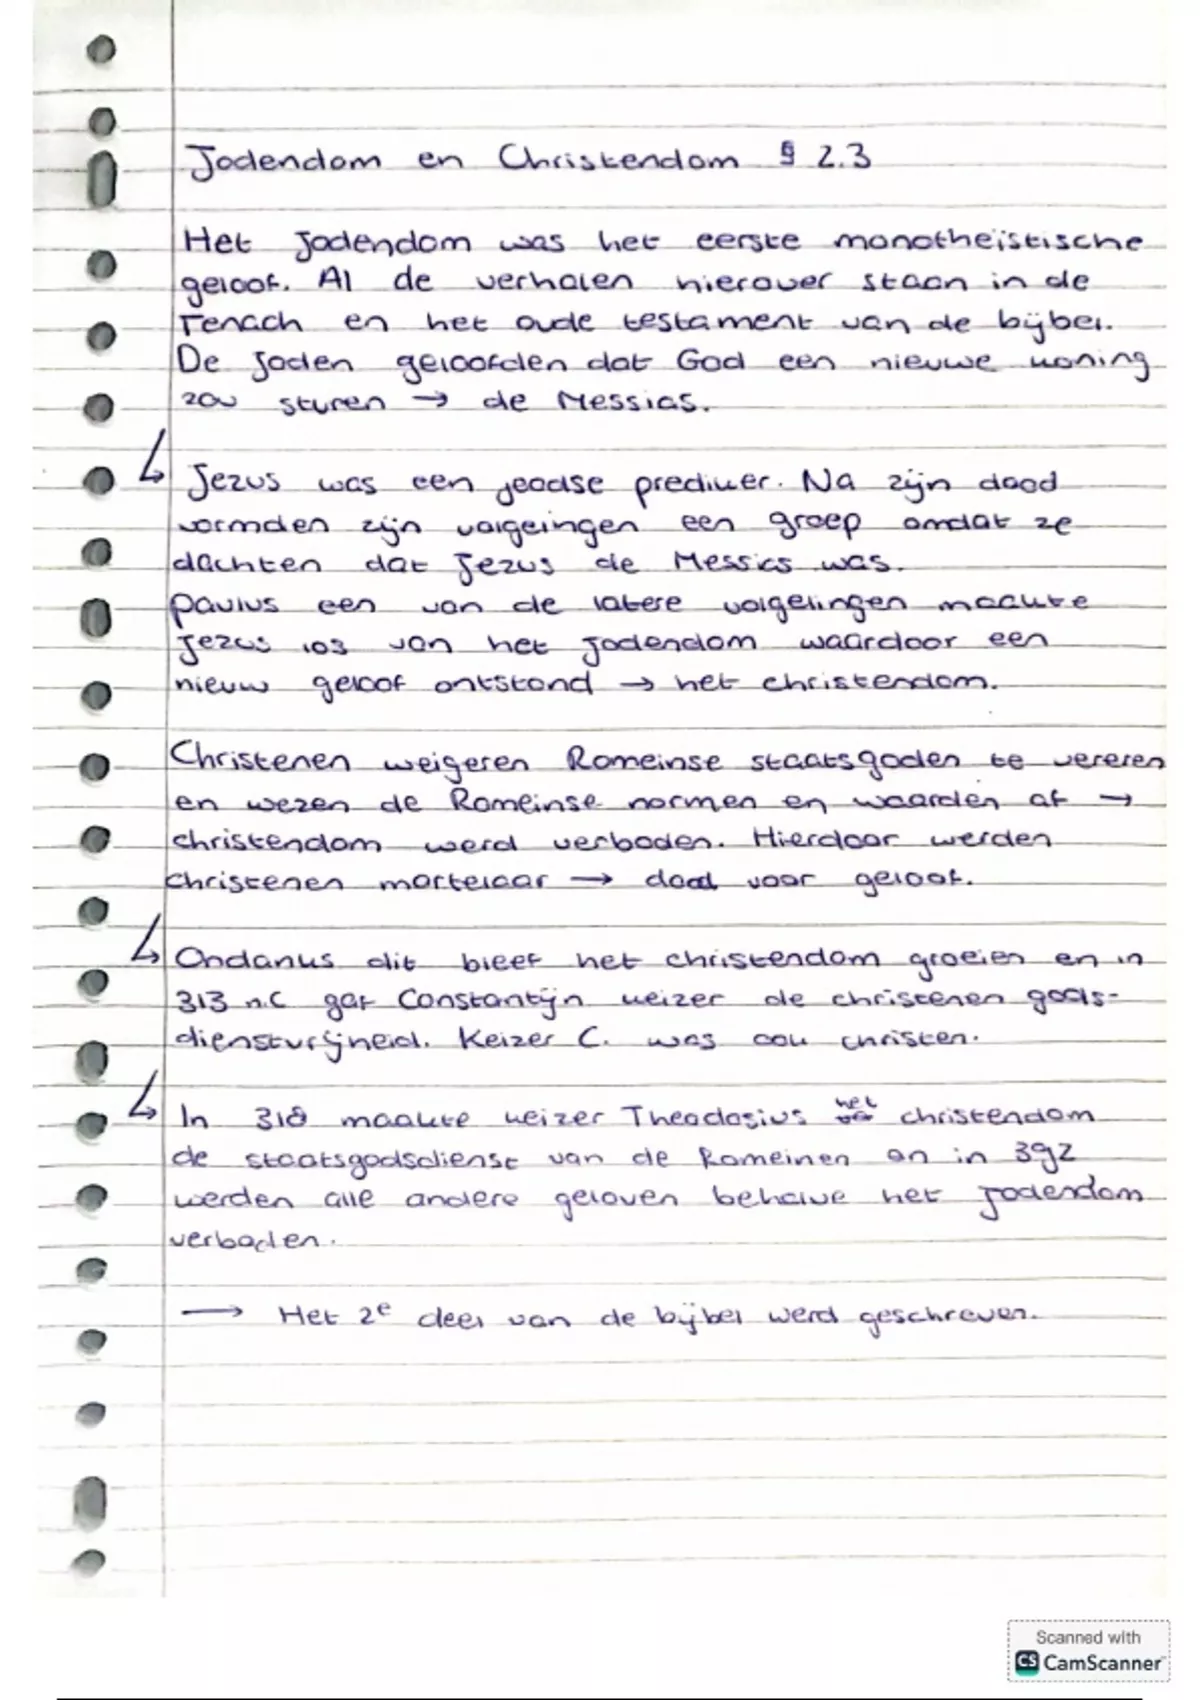 Jodendom en Christendom § 2.3
Het Jodendom was het eerste monotheïstische
geloof. Al de verhalen hierover staan in de
Tenach en het oude testament van de bijbel.
De Joden geloofden dat God een nieuwe koning
zou sturen → de Messias.
↳ Jezus was een joodse prediker. Na zijn dood
vormden zijn volgelingen een groep omdat ze
dachten dat Jezus de Messias was.
Paulus een van de latere volgelingen maakte
Jezus los van het Jodendom waardoor een
nieuw geloof ontstond → het christendom.
Christenen weigeren Romeinse staatsgoden te vereren
en wezen de Romeinse normen en waarden af →
christendom werd verboden. Hierdoor werden
Christenen martelaar → dood voor geloof.
↳ Ondanks dit bleef het christendom groeien en in
313 n.C gaf Constantijn keizer de christenen gods-
dienstvrijheid. Keizer C. was ook christen.
↳ In 318 maakte keizer Theodosius het christendom
de staatsgodsdienst van de Romeinen en in 392
werden alle andere geloven behalve het Jodendom
verboden.
→ Het 2e deel van de bijbel werd geschreven.
Scanned with
CS CamScanner